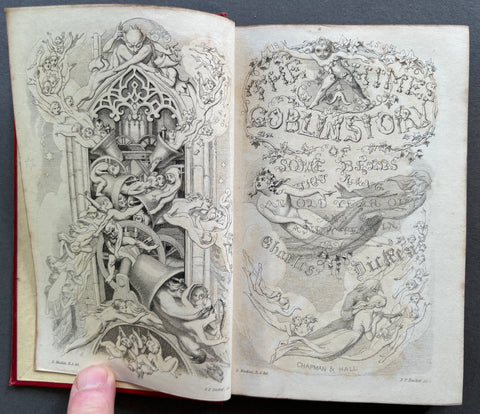 D. Maclise, R.A. del.
F. P. Becker, sc.
THE CHIMES
A
GOBLIN STORY
OF
SOME BELLS
THAT RANG
AN OLD YEAR OUT
AND A NEW YEAR IN
BY
Charles Dickens
CHAPMAN & HALL
D. Maclise, R.A. del.
F. P. Becker, sc.